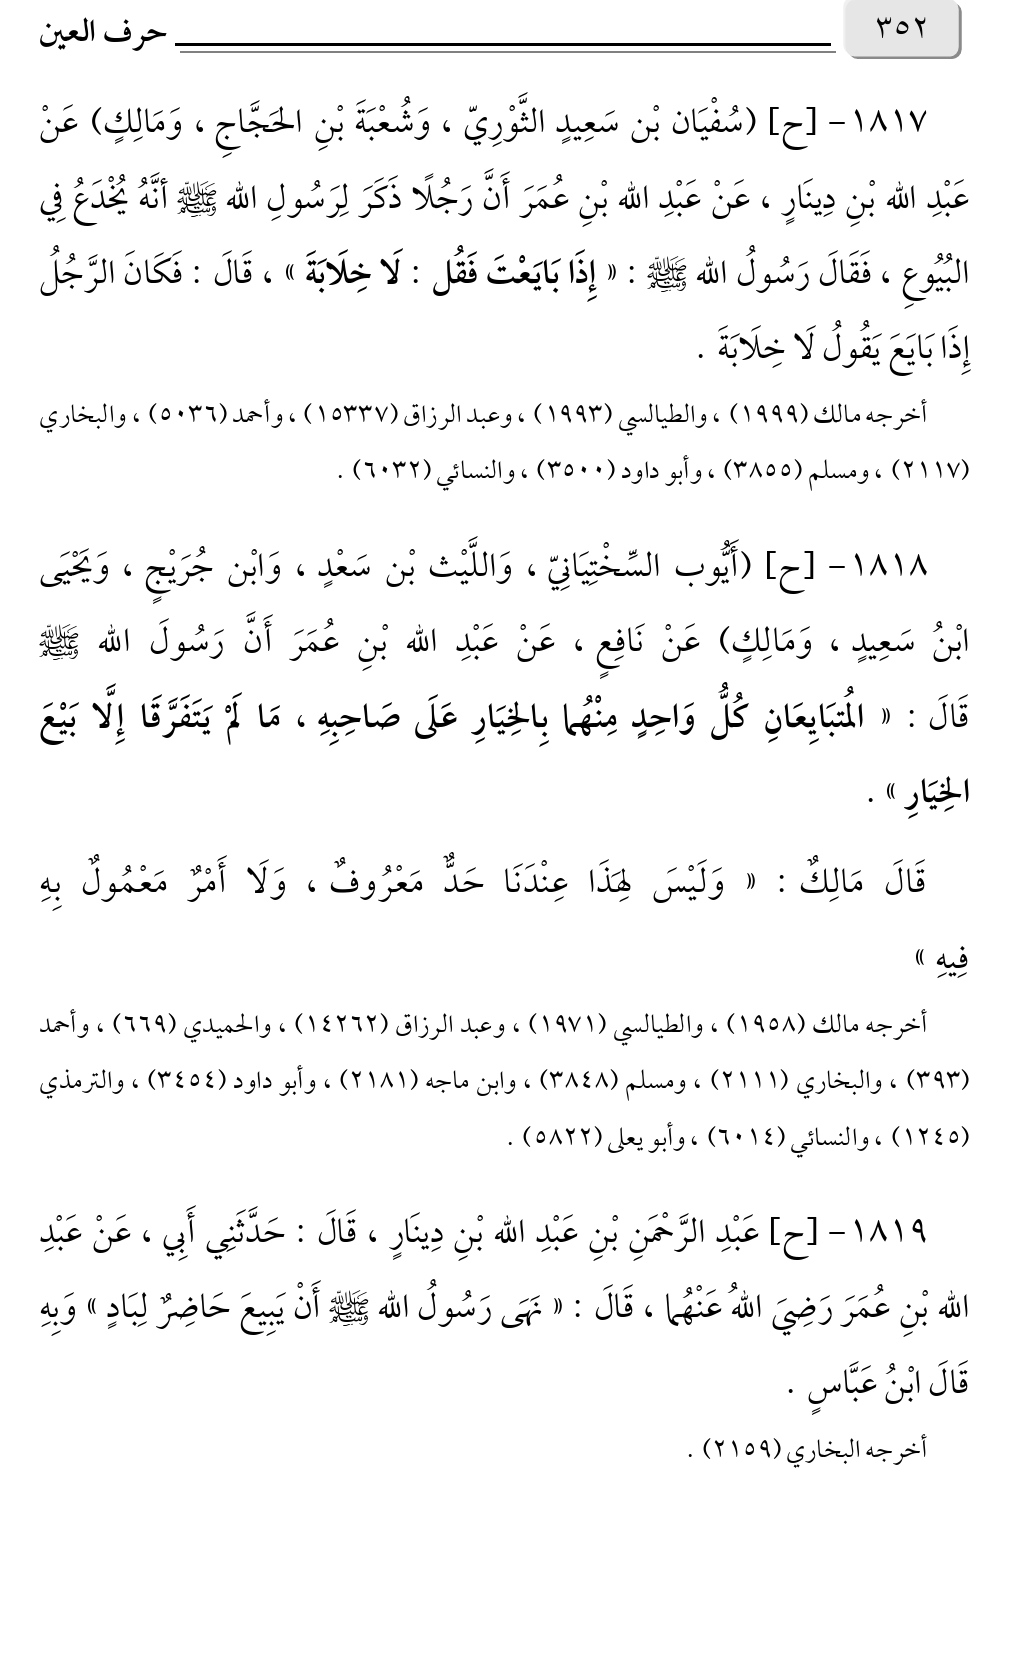 ٣٥٢ حرف العين
١٨١٧- [ح] (سُفْيَان بْن سَعِيدٍ الثَّوْرِيّ ، وَشُعْبَةَ بْنِ الحَجَّاجِ ، وَمَالِكٍ) عَنْ
عَبْدِ الله بْنِ دِينَارٍ ، عَنْ عَبْدِ الله بْنِ عُمَرَ أَنَّ رَجُلًا ذَكَرَ لِرَسُولِ الله ﷺ أنَّهُ يُخْدَعُ فِي
البُيُوعِ ، فَقَالَ رَسُولُ الله ﷺ : « إِذَا بَايَعْتَ فَقُل : لَا خِلَابَةَ » ، قَالَ : فَكَانَ الرَّجُلُ
إِذَا بَايَعَ يَقُولُ لَا خِلَابَةَ .
أخرجه مالك (١٩٩٩) ، والطيالسي (١٩٩٣) ، وعبد الرزاق (١٥٣٣٧) ، وأحمد (٥٠٣٦) ، والبخاري
(٢١١٧) ، ومسلم (٣٨٥٥) ، وأبو داود (٣٥٠٠) ، والنسائي (٦٠٣٢) .
١٨١٨- [ح] (أَيُّوب السِّخْتِيَانِيّ ، وَاللَّيْث بْن سَعْدٍ ، وَابْن جُرَيْجٍ ، وَيَحْيَى
ابْنُ سَعِيدٍ ، وَمَالِكٍ) عَنْ نَافِعٍ ، عَنْ عَبْدِ الله بْنِ عُمَرَ أَنَّ رَسُولَ الله ﷺ
قَالَ : « المُتبَايِعَانِ كُلُّ وَاحِدٍ مِنْهُما بِالخِيَارِ عَلَى صَاحِبِهِ ، مَا لَمْ يَتَفَرَّقَا إِلَّا بَيْعَ
الخِيَارِ » .
قَالَ مَالِكٌ : « وَلَيْسَ لِهَذَا عِنْدَنَا حَدٌّ مَعْرُوفٌ ، وَلَا أَمْرٌ مَعْمُولٌ بِهِ
فِيهِ »
أخرجه مالك (١٩٥٨) ، والطيالسي (١٩٧١) ، وعبد الرزاق (١٤٢٦٢) ، والحميدي (٦٦٩) ، وأحمد
(٣٩٣) ، والبخاري (٢١١١) ، ومسلم (٣٨٤٨) ، وابن ماجه (٢١٨١) ، وأبو داود (٣٤٥٤) ، والترمذي
(١٢٤٥) ، والنسائي (٦٠١٤) ، وأبو يعلى (٥٨٢٢) .
١٨١٩- [ح] عَبْدِ الرَّحْمَنِ بْنِ عَبْدِ الله بْنِ دِينَارٍ ، قَالَ : حَدَّثَنِي أَبِي ، عَنْ عَبْدِ
الله بْنِ عُمَرَ رَضِيَ اللهُ عَنْهُما ، قَالَ : « نَهَى رَسُولُ الله ﷺ أَنْ يَبِيعَ حَاضِرٌ لِبَادٍ » وَبِهِ
قَالَ ابْنُ عَبَّاسٍ .
أخرجه البخاري (٢١٥٩) .